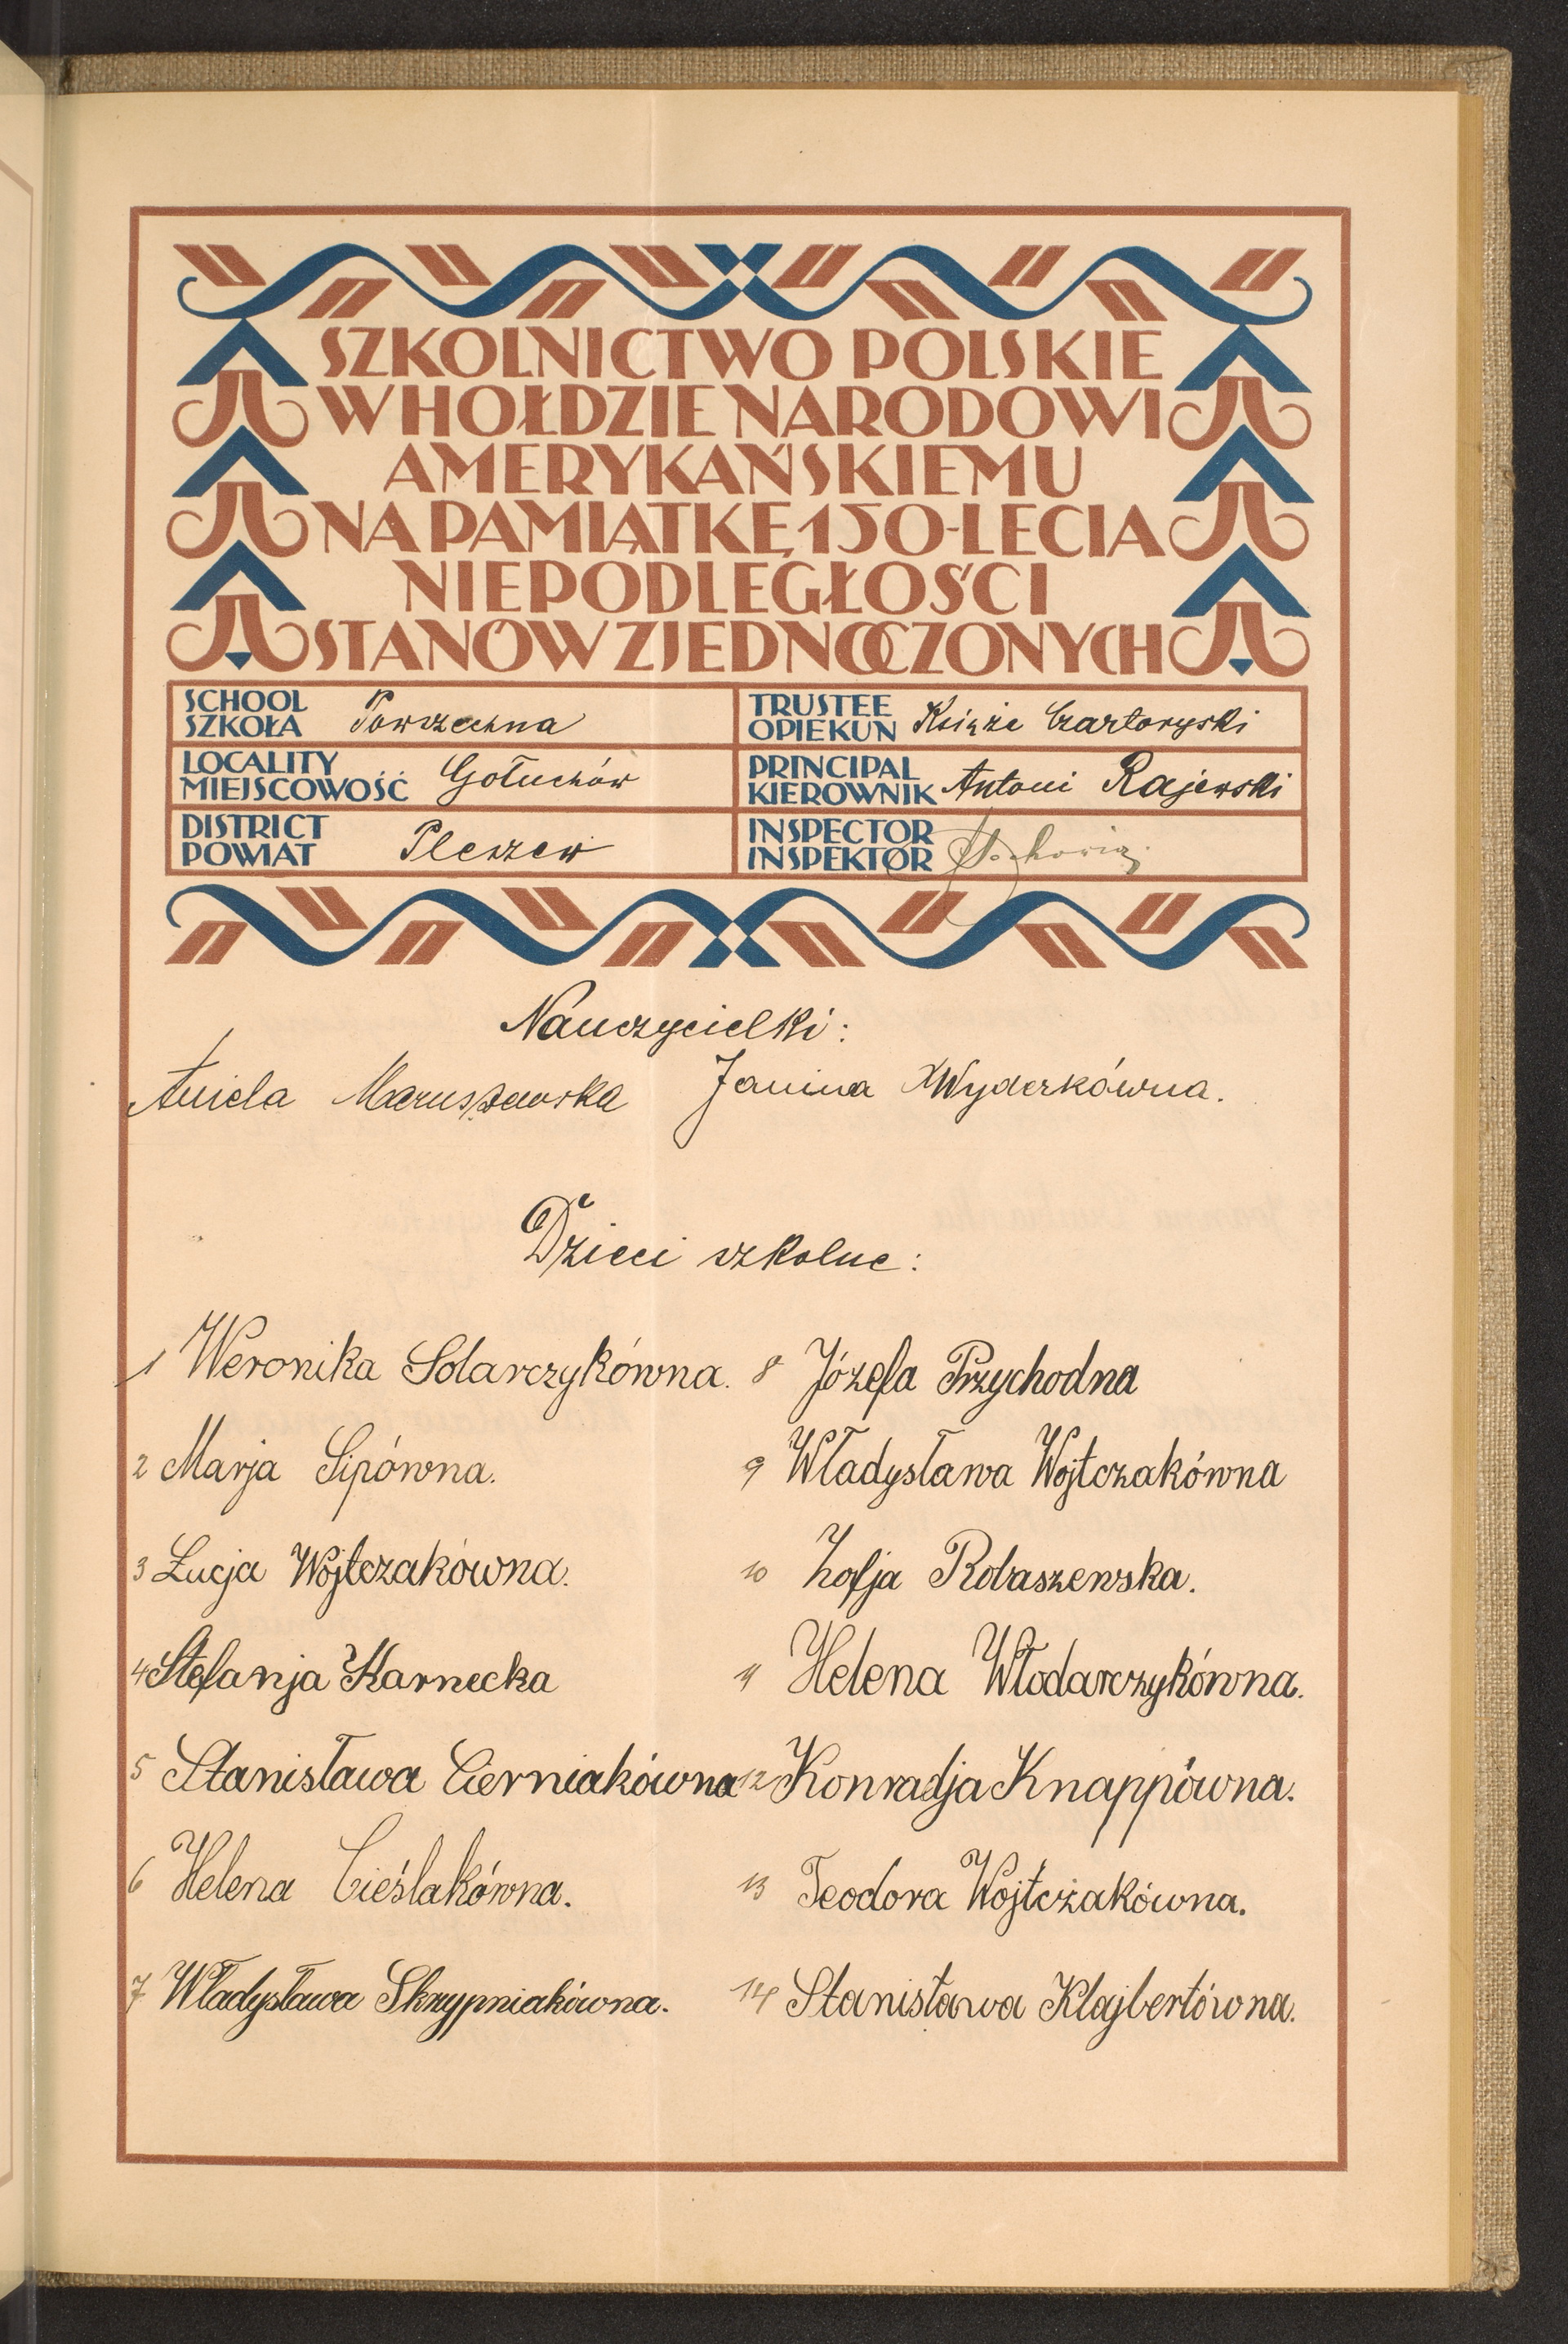 SZKOLNICTWO POLSKIE
W HOŁDZIE NARODOWI
AMERYKAŃSKIEMU
NA PAMIĄTKĘ 150-LECIA
NIEPODLEGŁOŚCI
STANÓW ZJEDNOCZONYCH
SCHOOL
SZKOŁA Powszechna
TRUSTEE
OPIEKUN Książe Czartoryski
LOCALITY
MIEJSCOWOŚĆ Gołuchów
PRINCIPAL
KIEROWNIK Antoni Rajewski
DISTRICT
POWIAT Pleszew
INSPECTOR
INSPEKTOR
Nauczycielki:
Aniela Maruszewska Janina Wyderkówna.
Dzieci szkolne:
1 Weronika Solarczykówna. 8 Józefa Przychodna
2 Marja Sipówna. 9 Władysława Wojtczakówna
3 Łucja Wojtczakówna. 10 Zofja Robaszewska.
4 Stefanja Karnecka 11 Helena Włodarczykówna.
5 Stanisława Cierniakówna 12 Konradja Knappówna.
6 Helena Cieślakówna. 13 Teodora Wojtczakówna.
7 Władysława Skrzypniakówna. 14 Stanisława Klajbertówna.